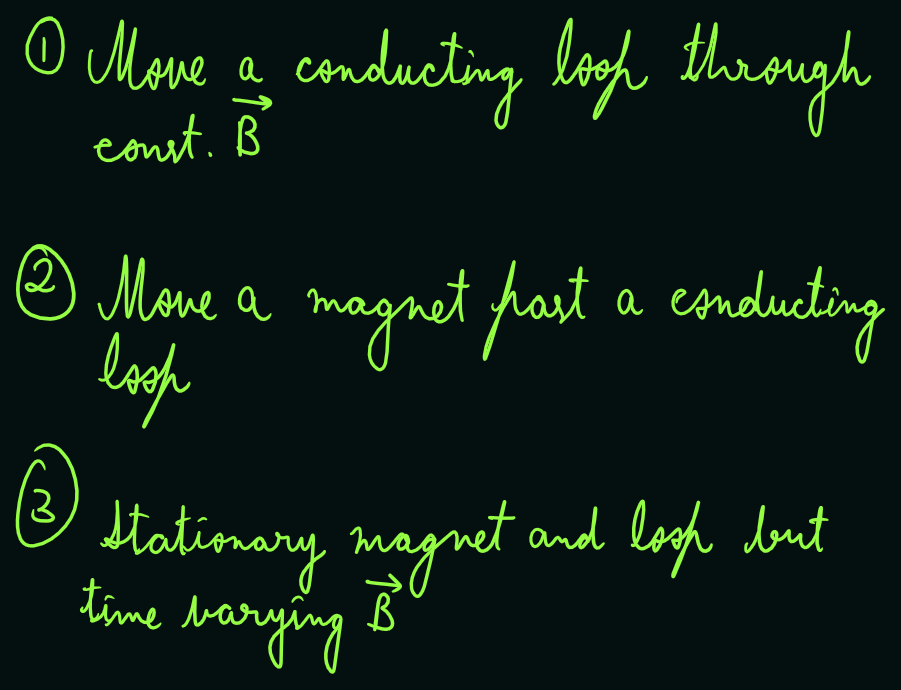 ① Move a conducting loop through
const. B⃗
② Move a magnet past a conducting
loop
③ Stationary magnet and loop but
time varying B⃗